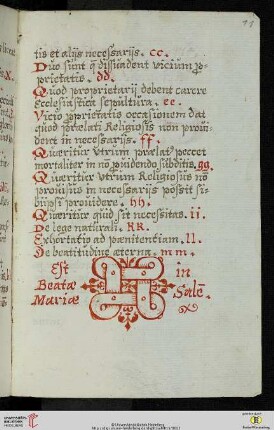 91
tis et alijs necessarijs. cc.
Duo sunt q̃ dissuadent vicium ꝓ-
prietatis. dd.
Quod proprietarij debent carere
Ecclesiastica sepultura. ee.
Vicio ꝓprietatis occasionem dat
quod prælati Religiosis non proui-
dent in necessarijs. ff.
Quæritur vtrum prælat⁹ peccet
mortaliter in nõ ꝓuidendo subditis. gg.
Quæritur vtrum Religiosus nõ
prouisus in necessarijs possit si-
bijpsi prouidere. hh.
Quæritur quid sit necessitas. ii.
De lege naturali. KK.
Exhortatio ad pænitentiam. ll.
De beatitudine æterna. m m.
Est in
Beatæ Salẽ.
Mariæ